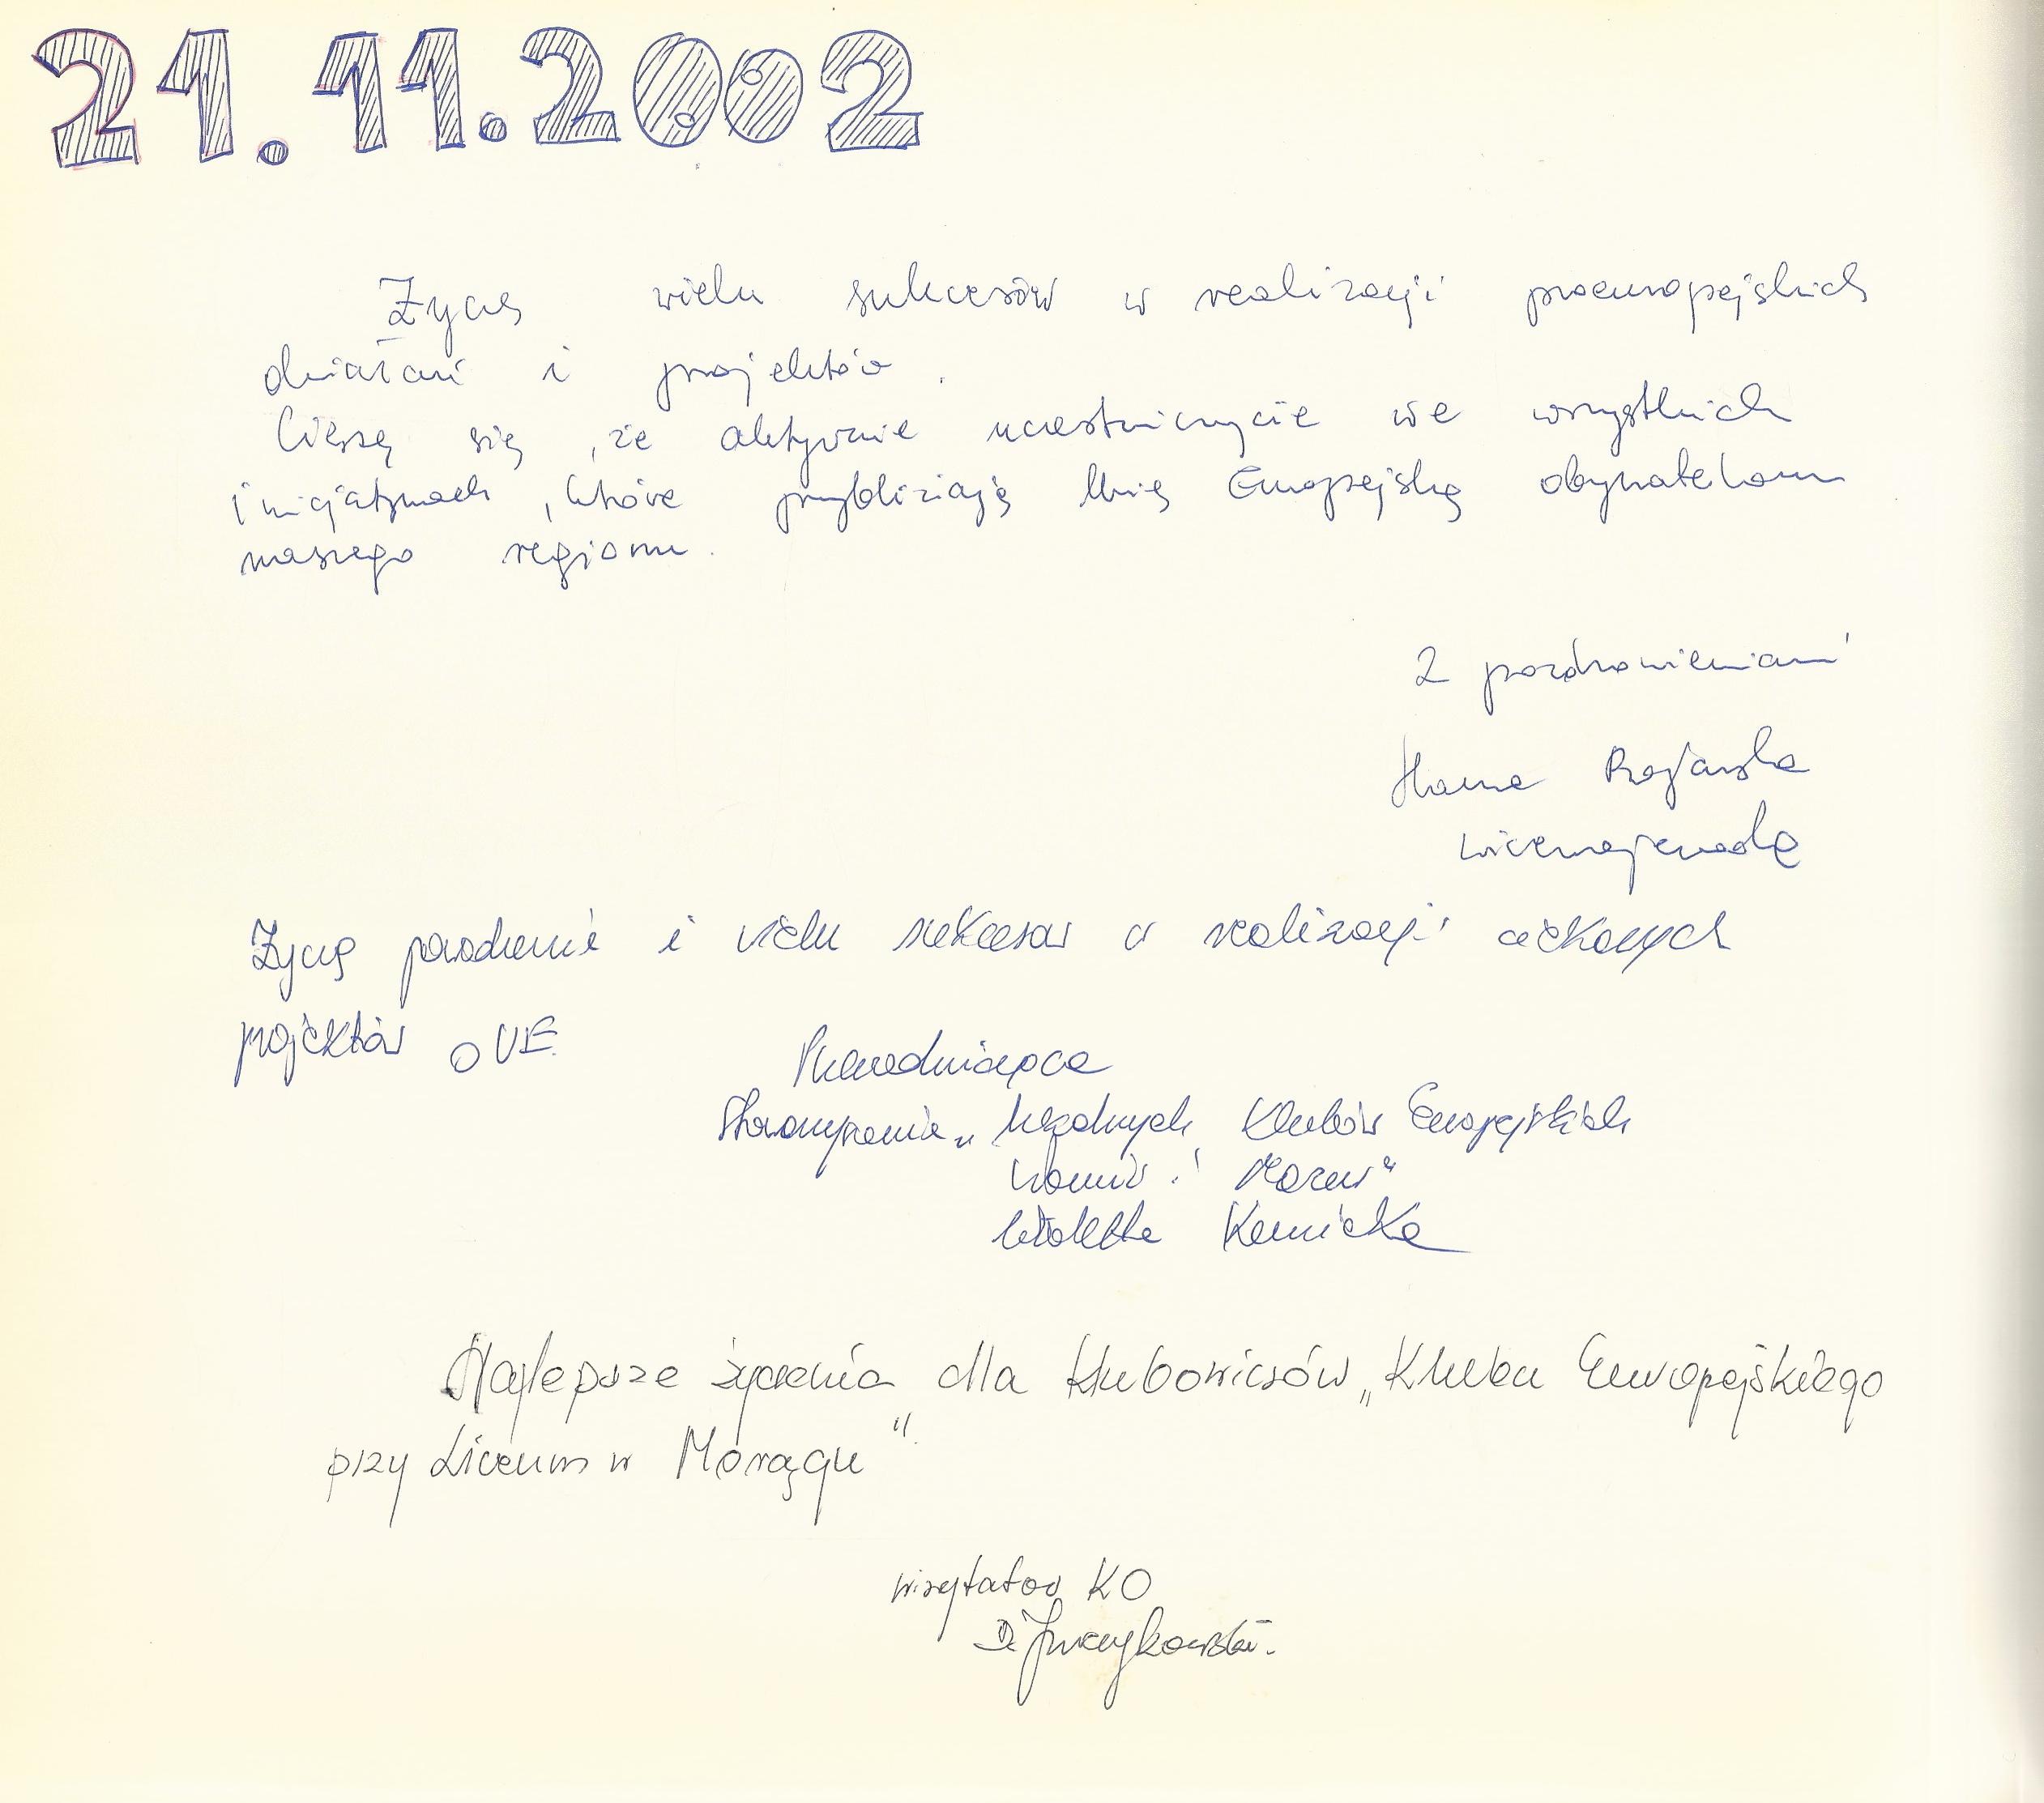 21.11.2002
Życzę wielu sukcesów w realizacji proeuropejskich
działań i projektów.
Cieszę się, że aktywnie uczestniczycie we wszystkich
inicjatywach, które przybliżają Unię Europejską obywatelom
naszego regionu.
Z pozdrowieniami
wicewojewoda
Życzę powodzenia i wielu sukcesów w realizacji ciekawych
projektów o UE
Przewodnicząca
Stowarzyszenia „ Klubów Europejskich
Warmii i Mazur"
Wioletta
Najlepsze życzenia dla klubowiczów „Klubu Europejskiego
przy Liceum w Morągu"
wizytator KO